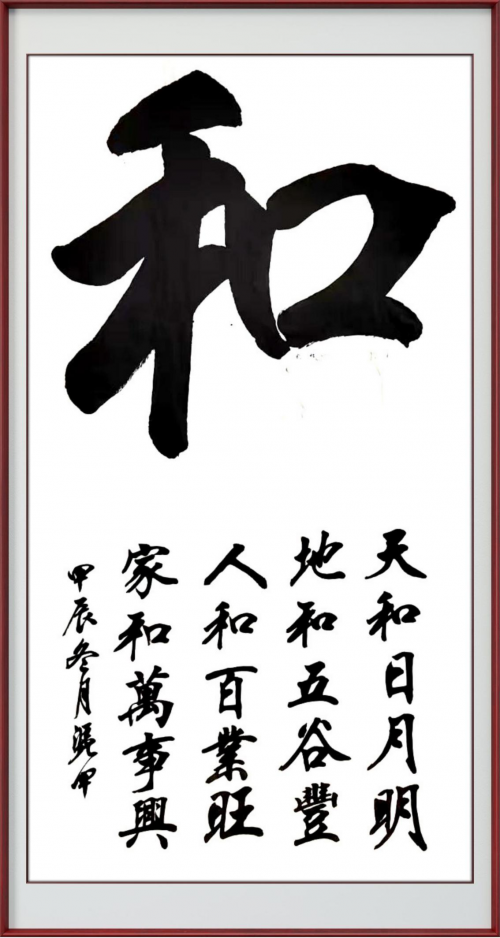 和
天和日月明
地和五谷豐
人和百業旺
家和萬事興
甲辰冬月